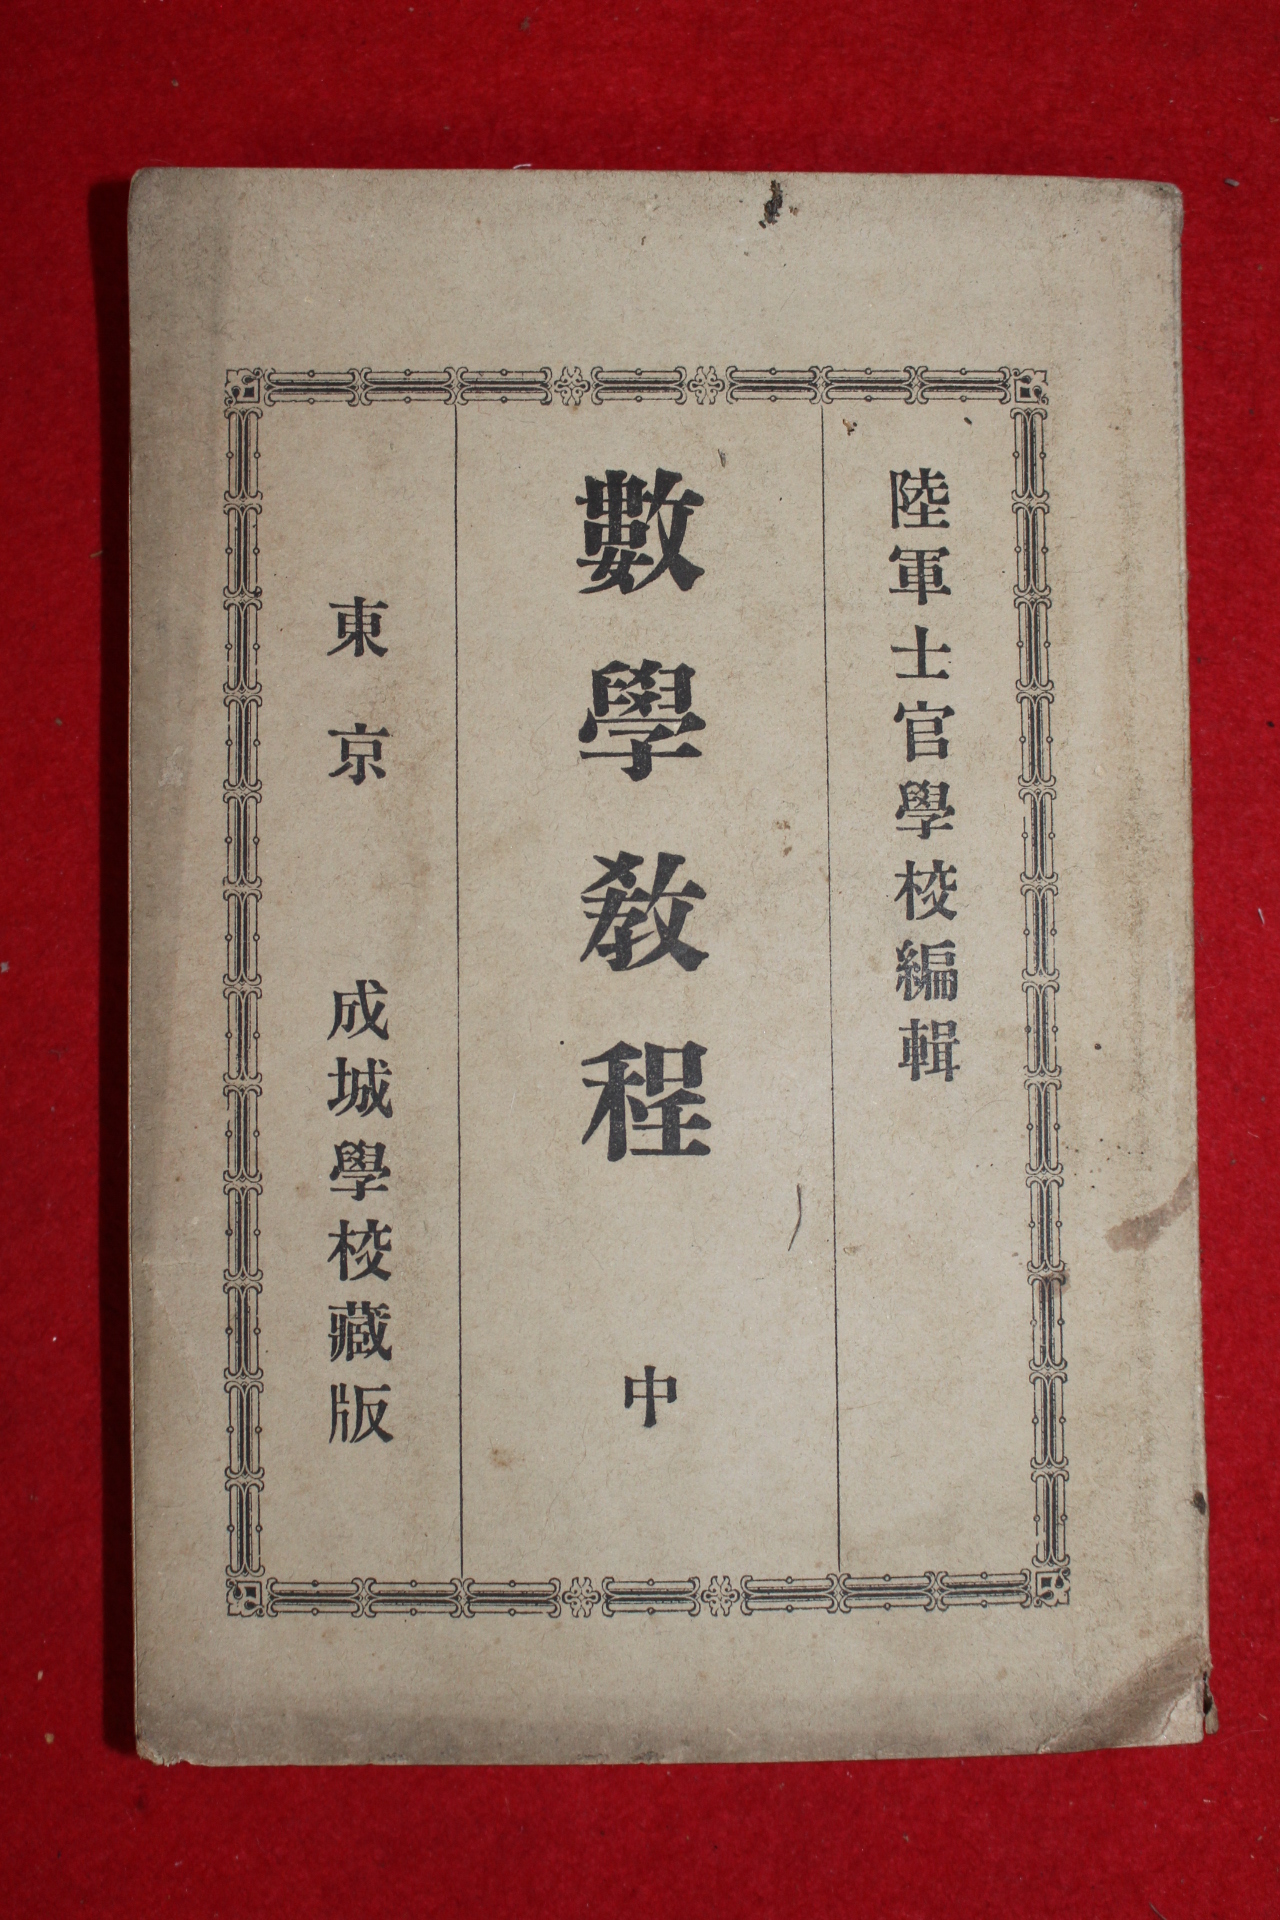 陸軍士官學校編輯
數學敎程 中
東京 成城學校藏版